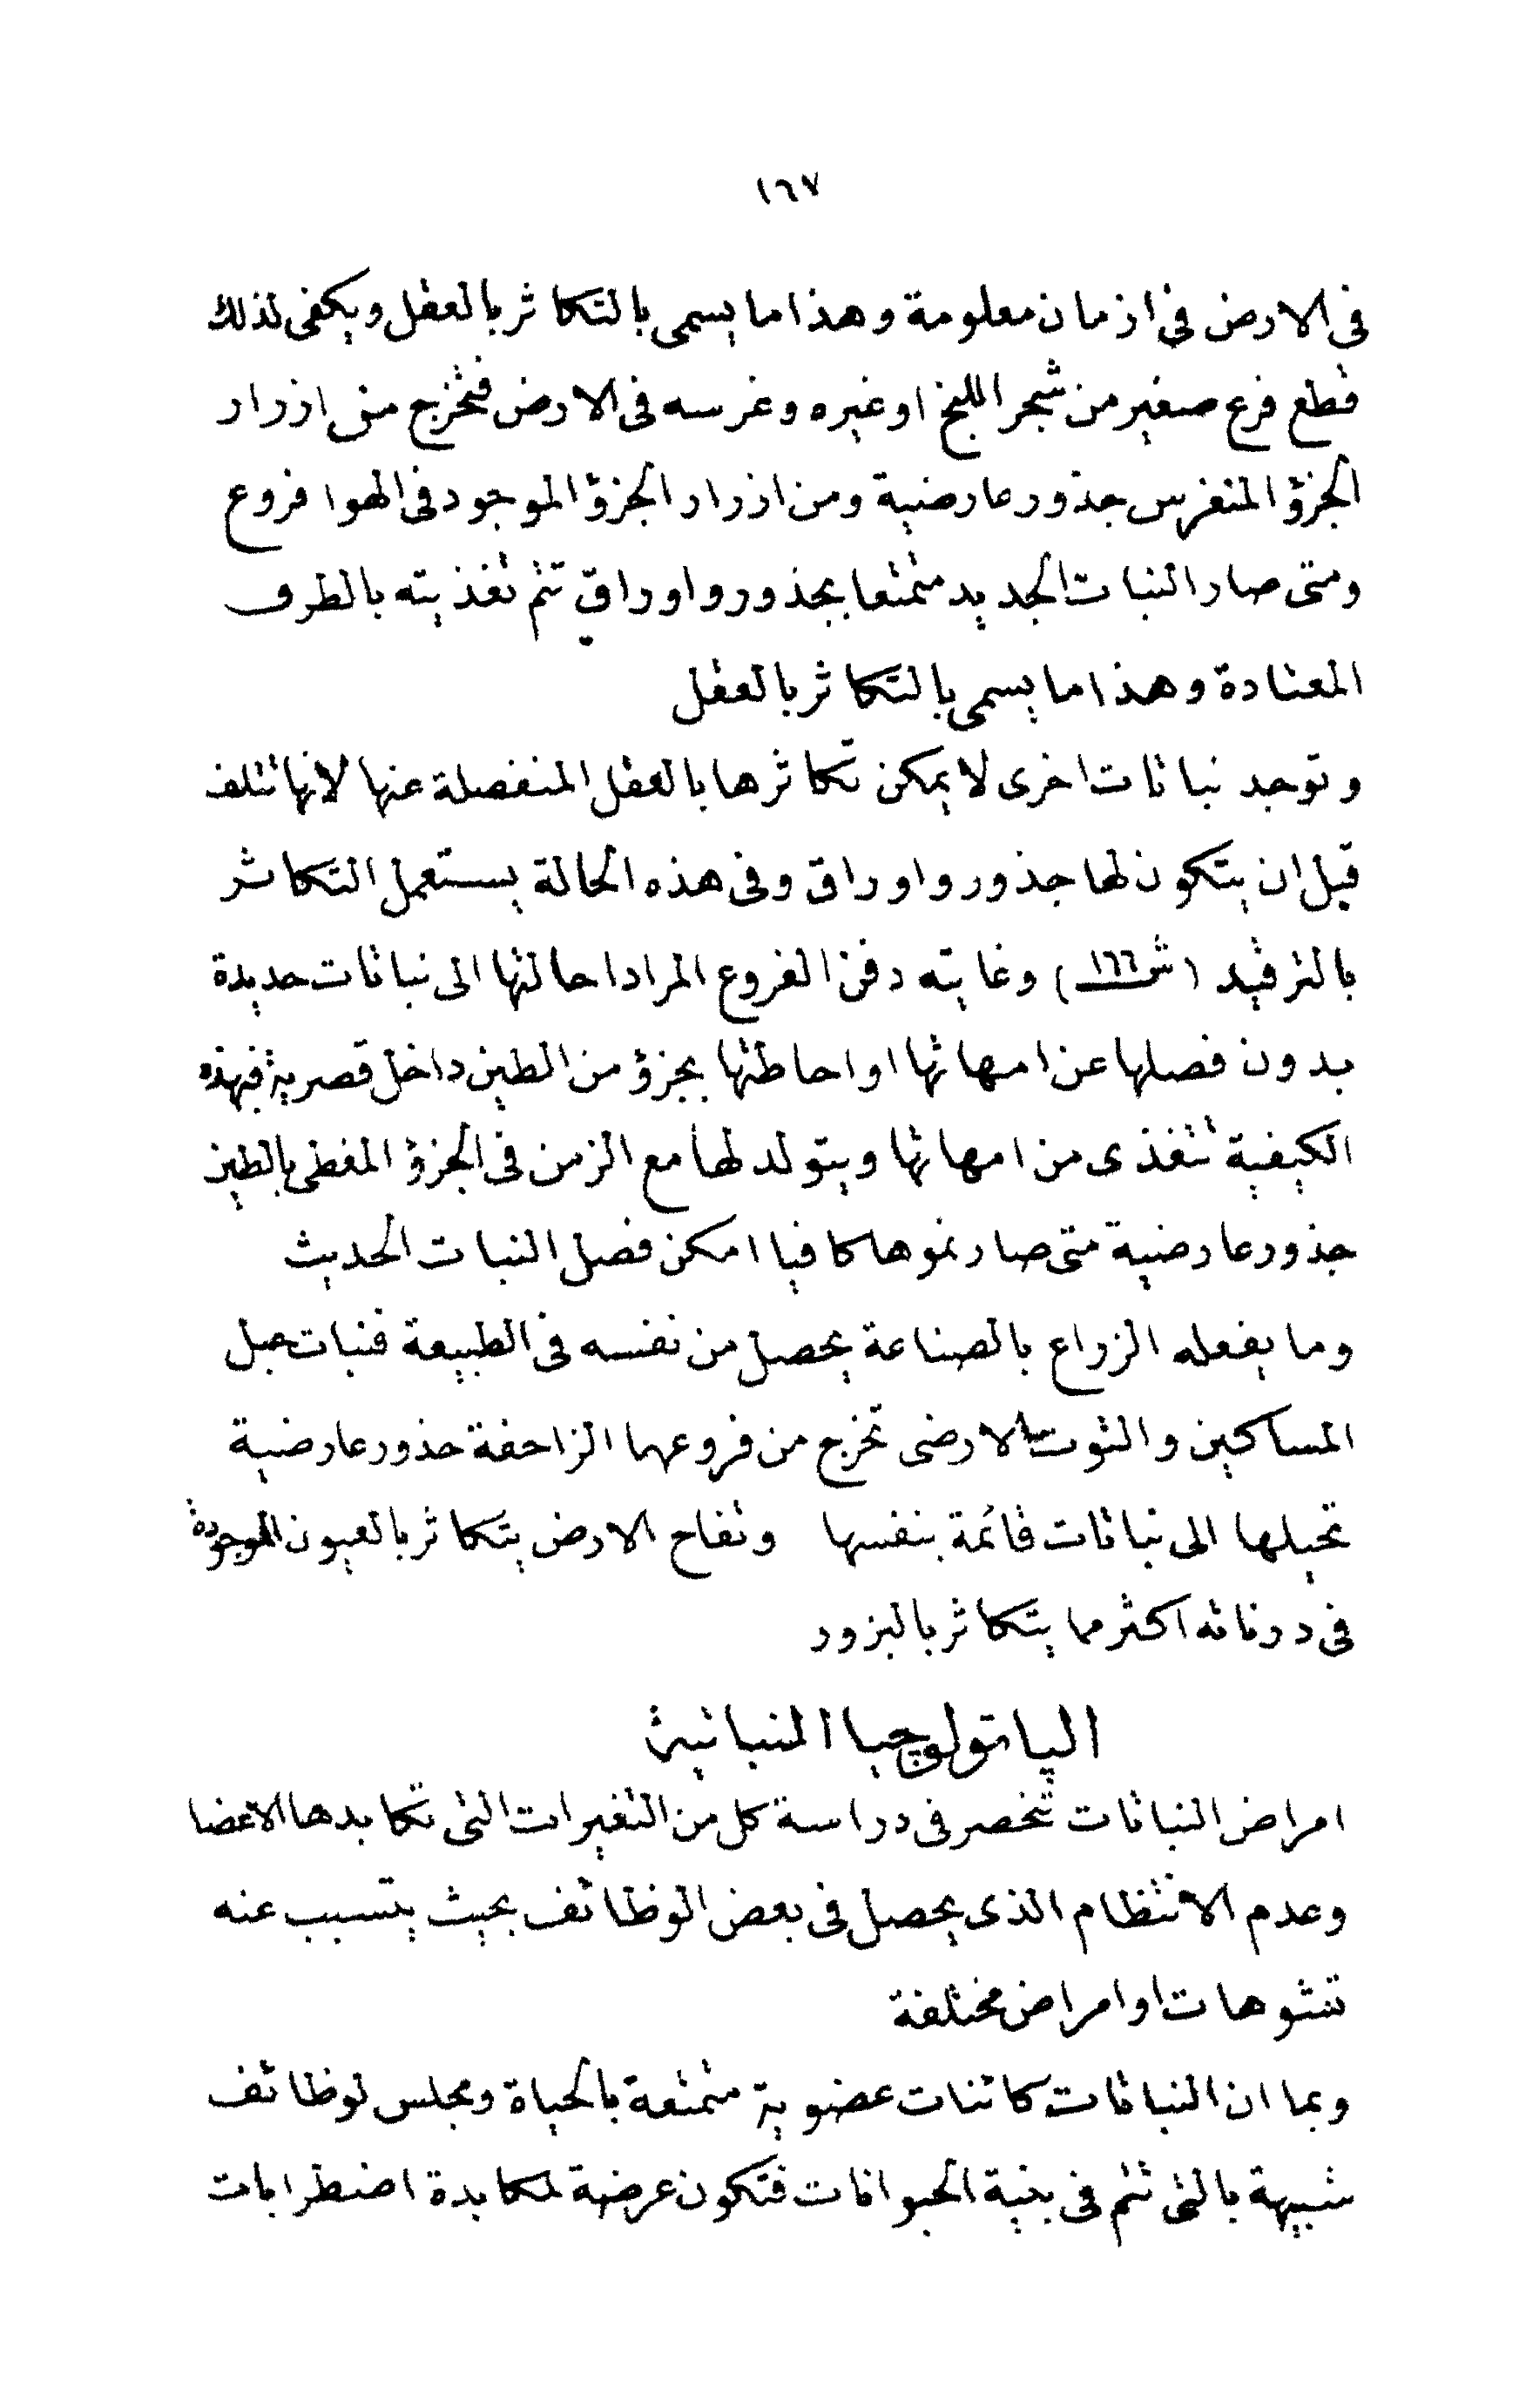 ١٦٧
فى الارض فى ازمان معلومة وهذا ما يسمى بالتكاثر بالعقل ويكفى لذلك
قطع فرع صغير من شجر اللبخ او غيره وغرسه فى الارض فتخرج من ازرار
الجزؤ المنغرس جذور عارضية ومن ازرار الجزؤ الموجود فى الهوا فروع
ومتى صار النبات الجديد متمتعا بجذور واوراق تتم تغذيته بالطرف
المعتادة وهذا ما يسمى بالتكاثر بالعقل
وتوجد نباتات اخرى لا يمكن تكاثرها بالعقل المنفصلة عنها لانها تتلف
قبل ان يتكون لها جذور واوراق وفى هذه الحالة يستعمل التكاثر
بالترقيد (ش ١٦٦) وغايته دفن الفروع المراد احالتها الى نباتات جديدة
بدون فصلها عن امهاتها او احاطتها بجزؤ من الطين داخل قصرية فبهذه
الكيفية تتغذى من امهاتها ويتولد لها مع الزمن فى الجزؤ المغطى بالطين
جذور عارضية متى صار نموها كافيا امكن فصل النبات الحديث
وما يفعله الزراع بالصناعة يحصل من نفسه فى الطبيعة فنبات حبل
المساكين والتوت الارضى تخرج من فروعها الزاحفة جذور عارضية
تحيلها الى نباتات قائمة بنفسها وتفاح الارض يتكاثر بالعيون الموجودة
فى درناته اكثر مما يتكاثر بالبزور
الپاتولوجيا النباتية
امراض النباتات تنحصر فى دراسة كل من التغيرات التى تكابدها الاعضا
وعدم الانتظام الذى يحصل فى بعض الوظائف بحيث يتسبب عنه
تشوهات او امراض مختلفة
وبما ان النباتات كائنات عضوية متمتعة بالحياة ومجلس لوظائف
شبيهة بالتى تتم فى بنية الحيوانات فتكون عرضة لمكابدة اضطرابات